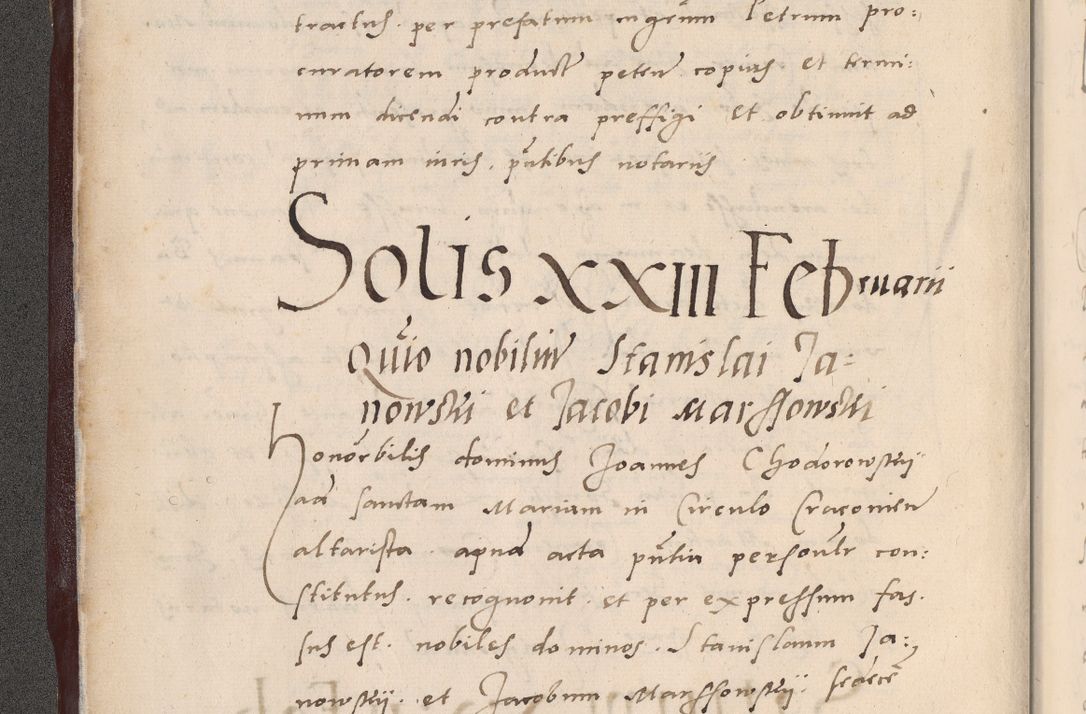 tractus. per prefatum mgrum Petrum pro:
curatorem product peten copias et termi:
num dicendi contra preffigi Et obtinuit ad
primam iuris. pntibus notariis
Solis XXIII Februarii
Quio nobiliu Stanislai Ja=
nowskii et Jacobi Marssowskii
honorbilis dominus Joannes Chodorowskij
ad sanctam Mariam in Circulo Cracovien
altarista. apud acta pntia personlr con:
stitutus. recognovit. et per expressum fas.
sus est. nobiles dominos. Stanislaum Ja:
nowskij. et Jacobum Marssowskij. sedece